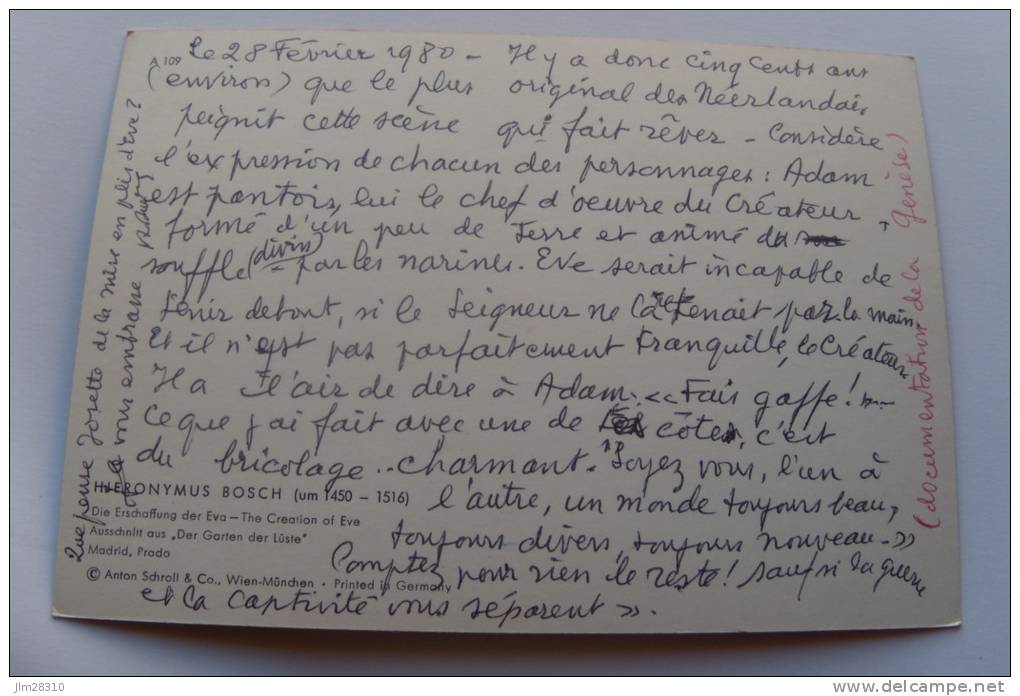 A 109
Le 28 Février 1980 - Il y a donc cinq cents ans
(environ) que le plus original des Néerlandais
peignit cette scène qui fait rêver - Considère
l'expression de chacun des personnages : Adam
est pantois, lui le chef d'oeuvre du Créateur,
formé d'un peu de terre et animé du
souffle (divin) par les narines. Eve serait incapable de
tenir debout, si le Seigneur ne la retenait par la main.
Et il n'est pas parfaitement tranquille, le Créateur
Il a l'air de dire à Adam. << Fais gaffe !
ce que j'ai fait avec une de tes côtes, c'est
du bricolage .. charmant. Soyez vous, l'un à
l'autre, un monde toujours beau,
toujours divers, toujours nouveau - >>
Comptez pour rien le reste ! sauf si la guerre
et la captivité vous séparent >>.
(documentation de la Genèse)
Que pense Josette de la mise en plis d'Eve ?
vous embrasse
HIERONYMUS BOSCH (um 1450 – 1516)
Die Erschaffung der Eva — The Creation of Eve
Ausschnitt aus „Der Garten der Lüste"
Madrid, Prado
© Anton Schroll & Co., Wien-München • Printed in Germany
jlm28310
www.delcampe.net